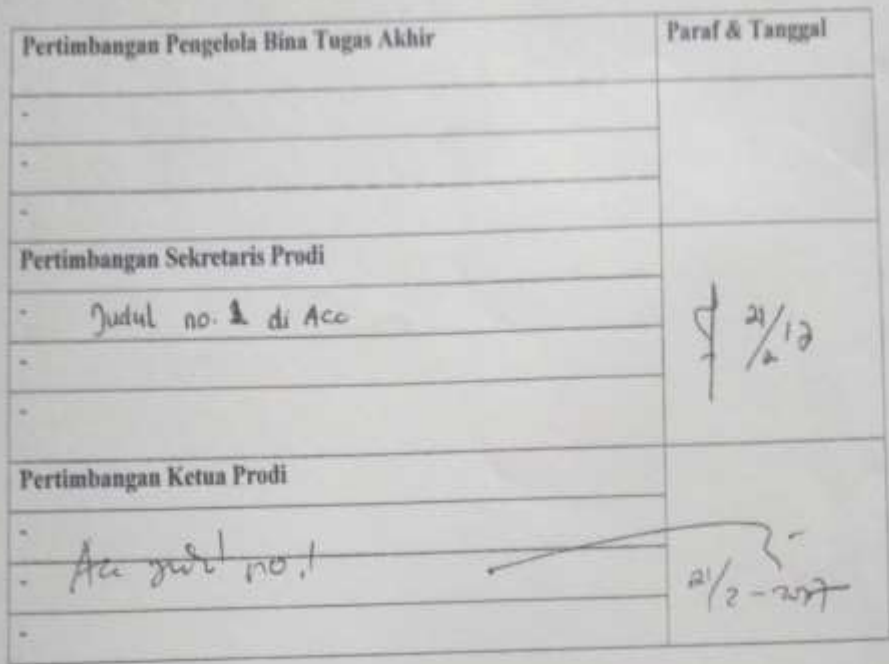 Pertimbangan Pengelola Bina Tugas Akhir Paraf & Tanggal
-
-
-
Pertimbangan Sekretaris Prodi
- Judul no. 1 di Acc
21/2 17
-
-
Pertimbangan Ketua Prodi
-
Acc judul no. 1
-
21/2 - 2017
-